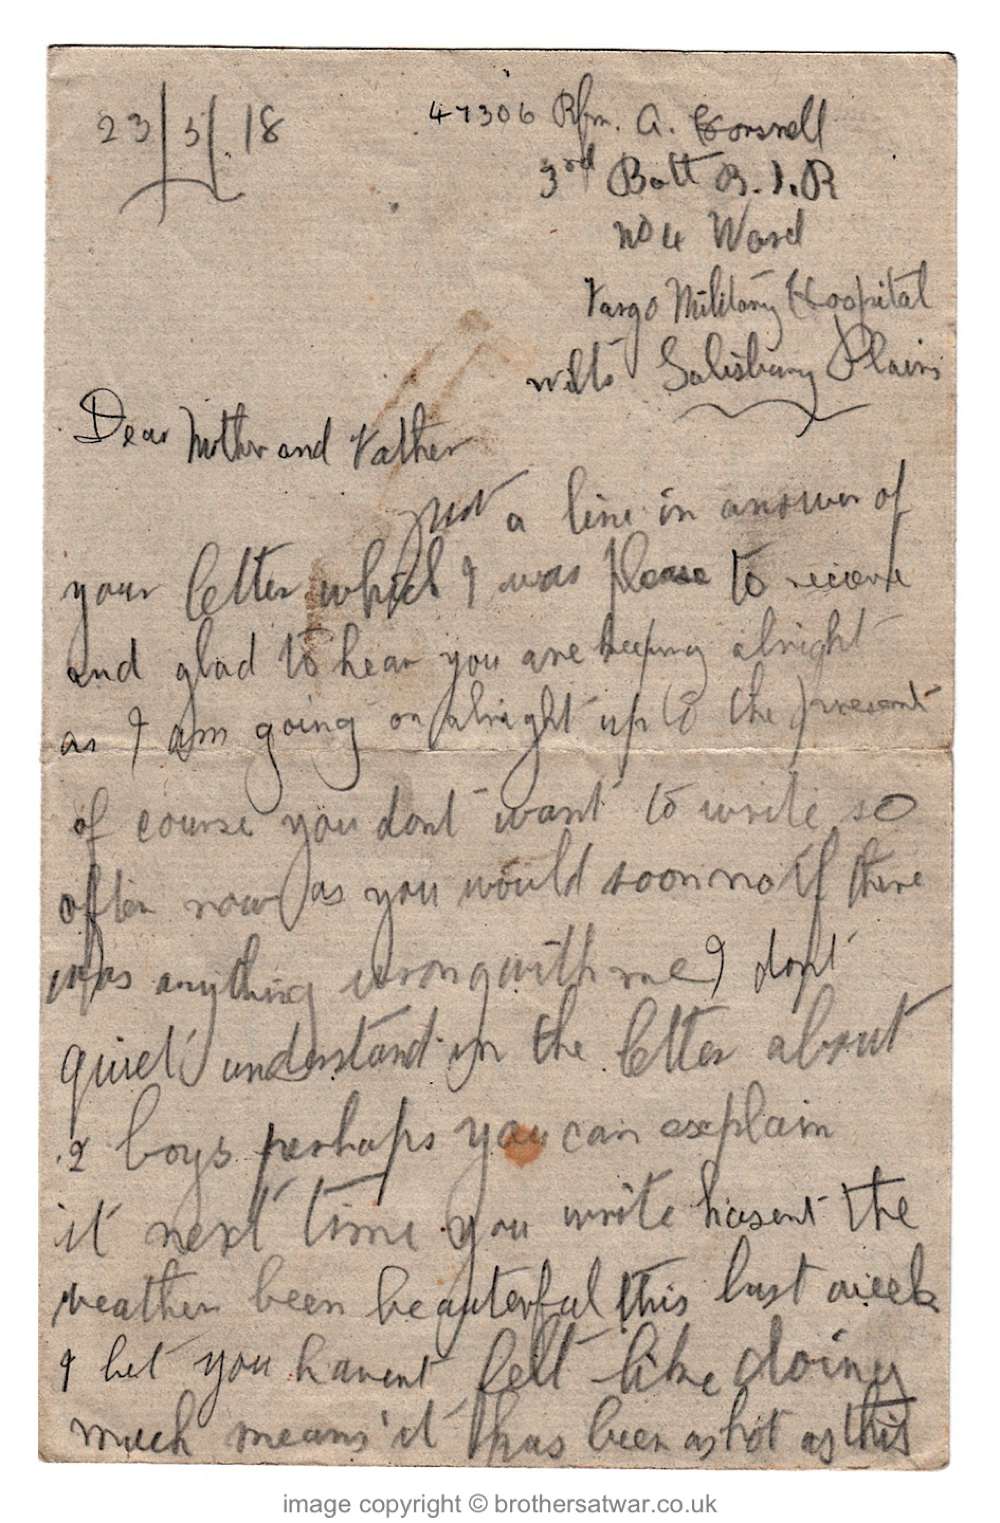 23/5/18
47306 Rfm. A. Gorsnell
3rd Batt R.I.R
No 4 Ward
Fargo Military Hospital
Wilts Salisbury Plains
Dear Mother and Father
Just a line in answer of
your letter which I was please to recieve
and glad to hear you are keeping alright
as I am going on alright up to the present
of course you dont want to write so
often now as you would soon no if there
was anything wrong with me I dont
quiet understand in the letter about
2 boys perhaps you can explain
it next time you write hasent the
weather been beauterful this last week
I bet you havent felt like doing
much means it has been as hot as this
image copyright © brothersatwar.co.uk